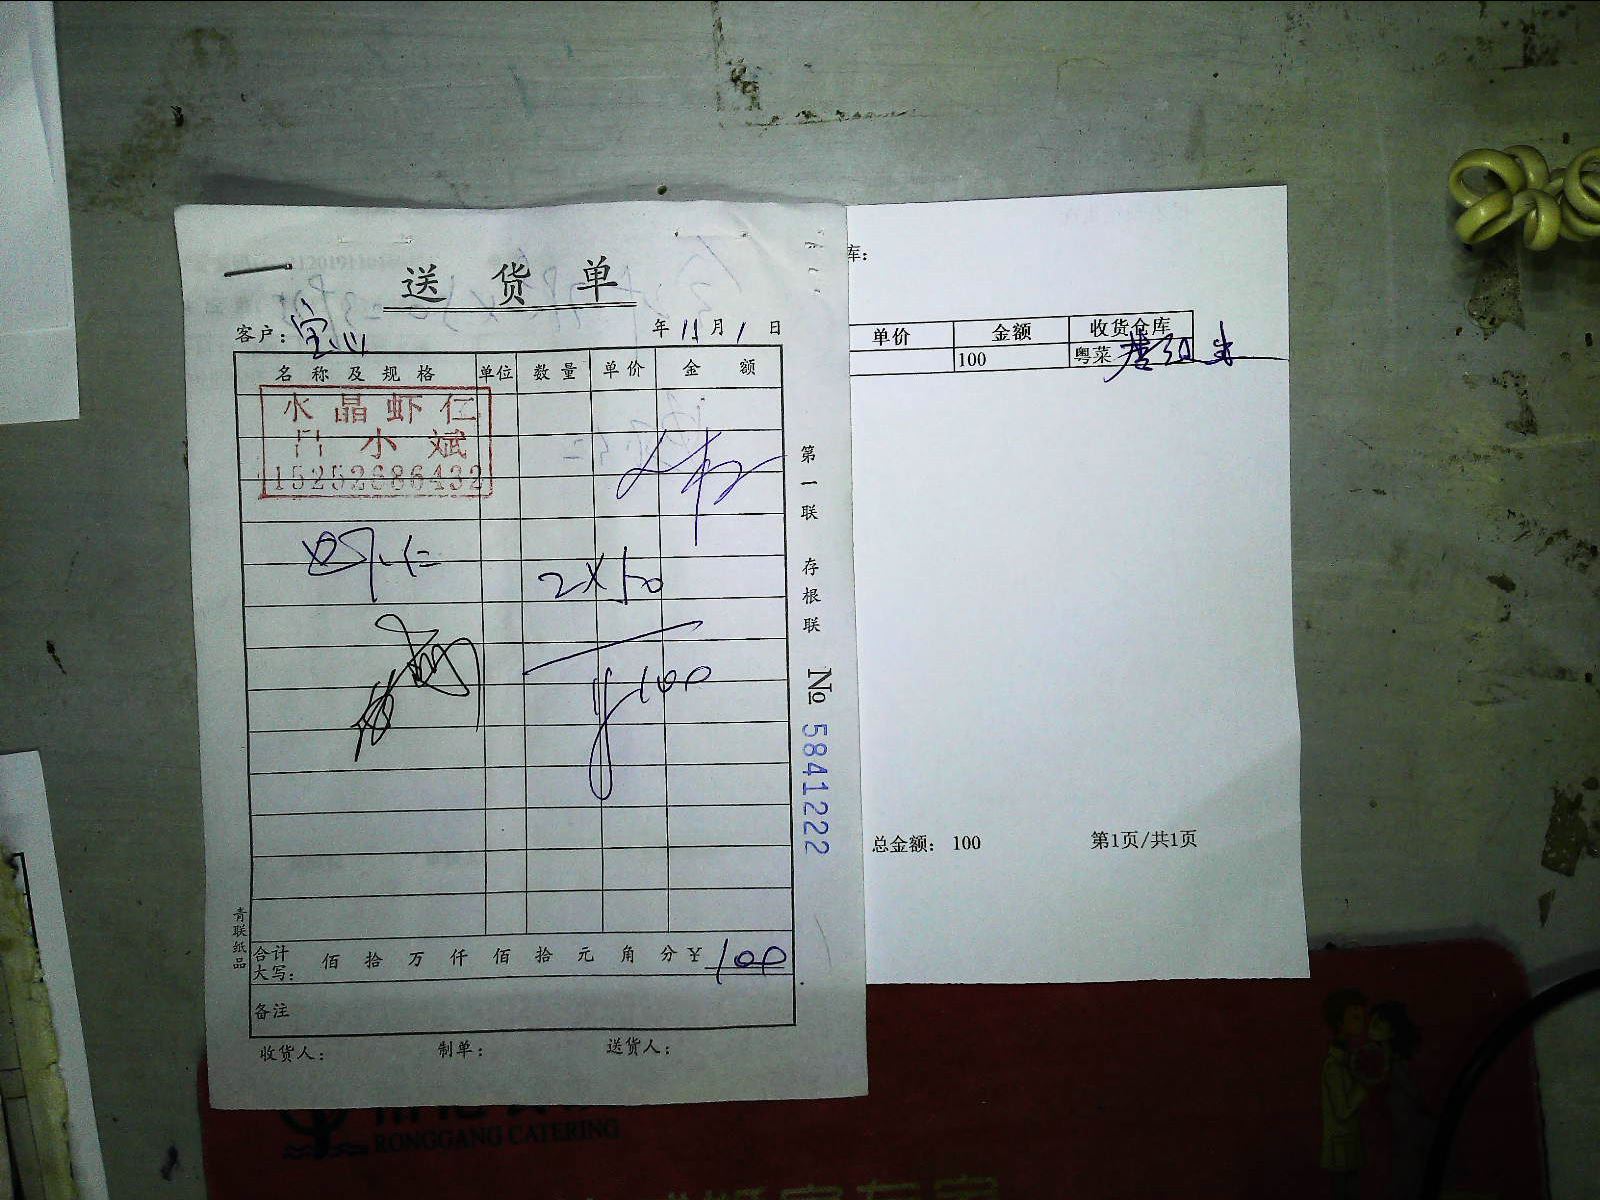 送 货 单
客户: 宝心
年 11 月 1 日
名 称 及 规 格 单位 数 量 单 价 金 额
水 晶 虾 仁
吕 小 斌
15252686432
虾仁 2×50
¥100
合计大写: 佰 拾 万 仟 佰 拾 元 角 分 ¥ 100
备注
收货人: 制单: 送货人:
青联纸品
第一联 存根联 № 5841222
库:
单价 金额 收货仓库
100 粤菜
总金额: 100 第1页/共1页
RONGGANG CATERING